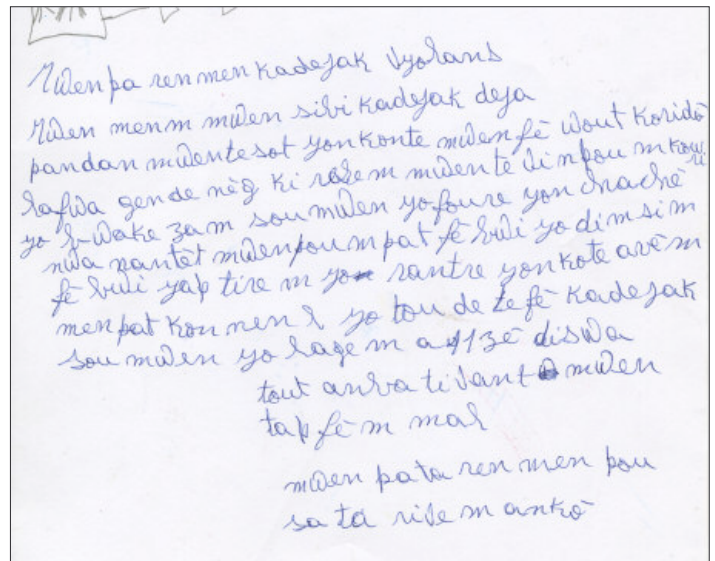 Mwen pa renmen kadejak vyolans
Mwen menm mwen sibi kadejak deja
pandan mwen te sot yon kote mwen fè wout koridò
lafwa gen de nèg ki rale m mwen te vin pou m kouri
yo bwake zam sou mwen yo foure yon chache
nwa nan tèt mwen pou m pat fè bwi yo di m si m
fè bwi yap tire m yo rantre yon kote avè m
men pat konnen l yo tou de te fè kadejak
sou mwen yo lage m a 11 zè diswa
tout anba ti vant mwen
tap fè m mal
mwen pa ta renmen pou
sa ta rive m ankò